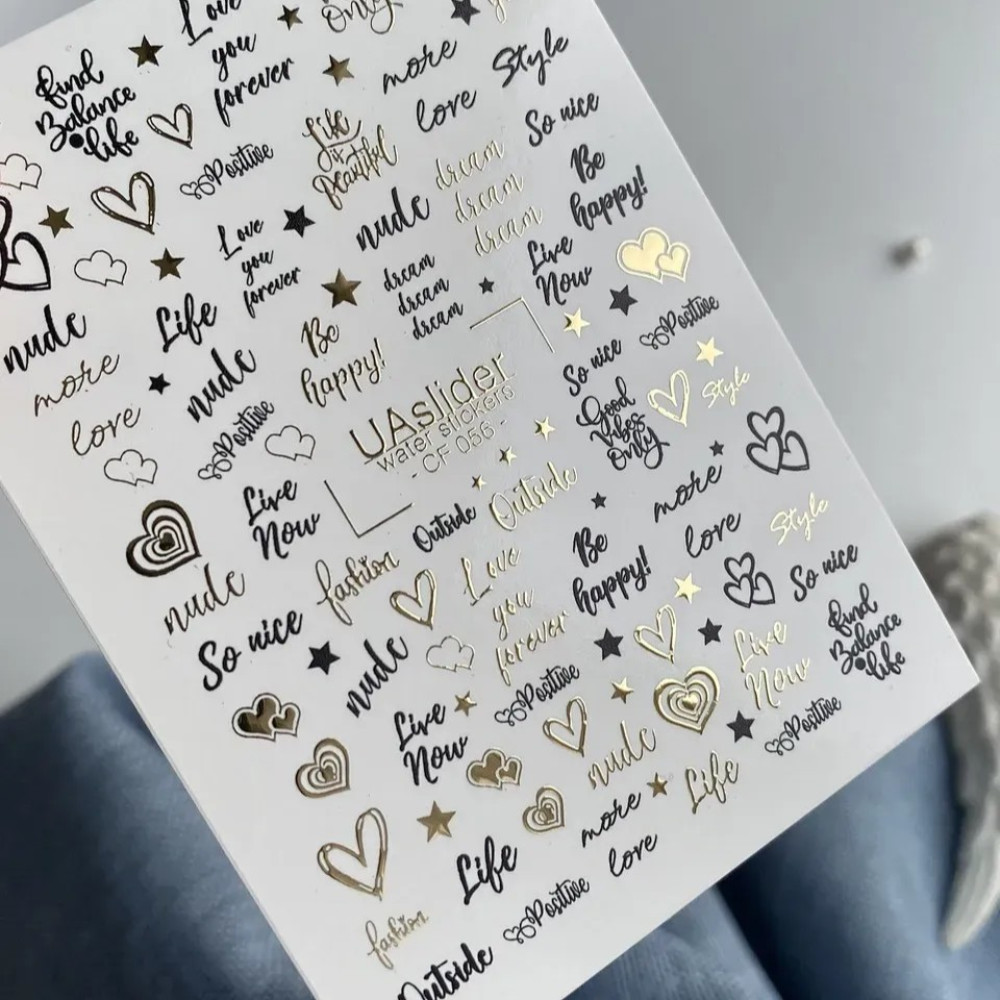 Love
you
forever
Only
find
Balance
life
more
love
Style
So nice
Positive
Life
is
Beautiful
dream
dream
dream
Be
happy!
Love
you
forever
nude
dream
dream
dream
Live
Now
nude
Life
Be
happy!
Positive
more
love
nude
Positive
UAslider
water stickers
- CF 056 -
So nice
Good
Vibes
Only
Style
Live
Now
Outside
Outside
more
love
Style
nude
fashion
Love
you
forever
Be
happy!
So nice
So nice
nude
Live
Now
Positive
Live
Now
find
Balance
life
Positive
nude
Life
more
love
Life
Positive
fashion
Outside